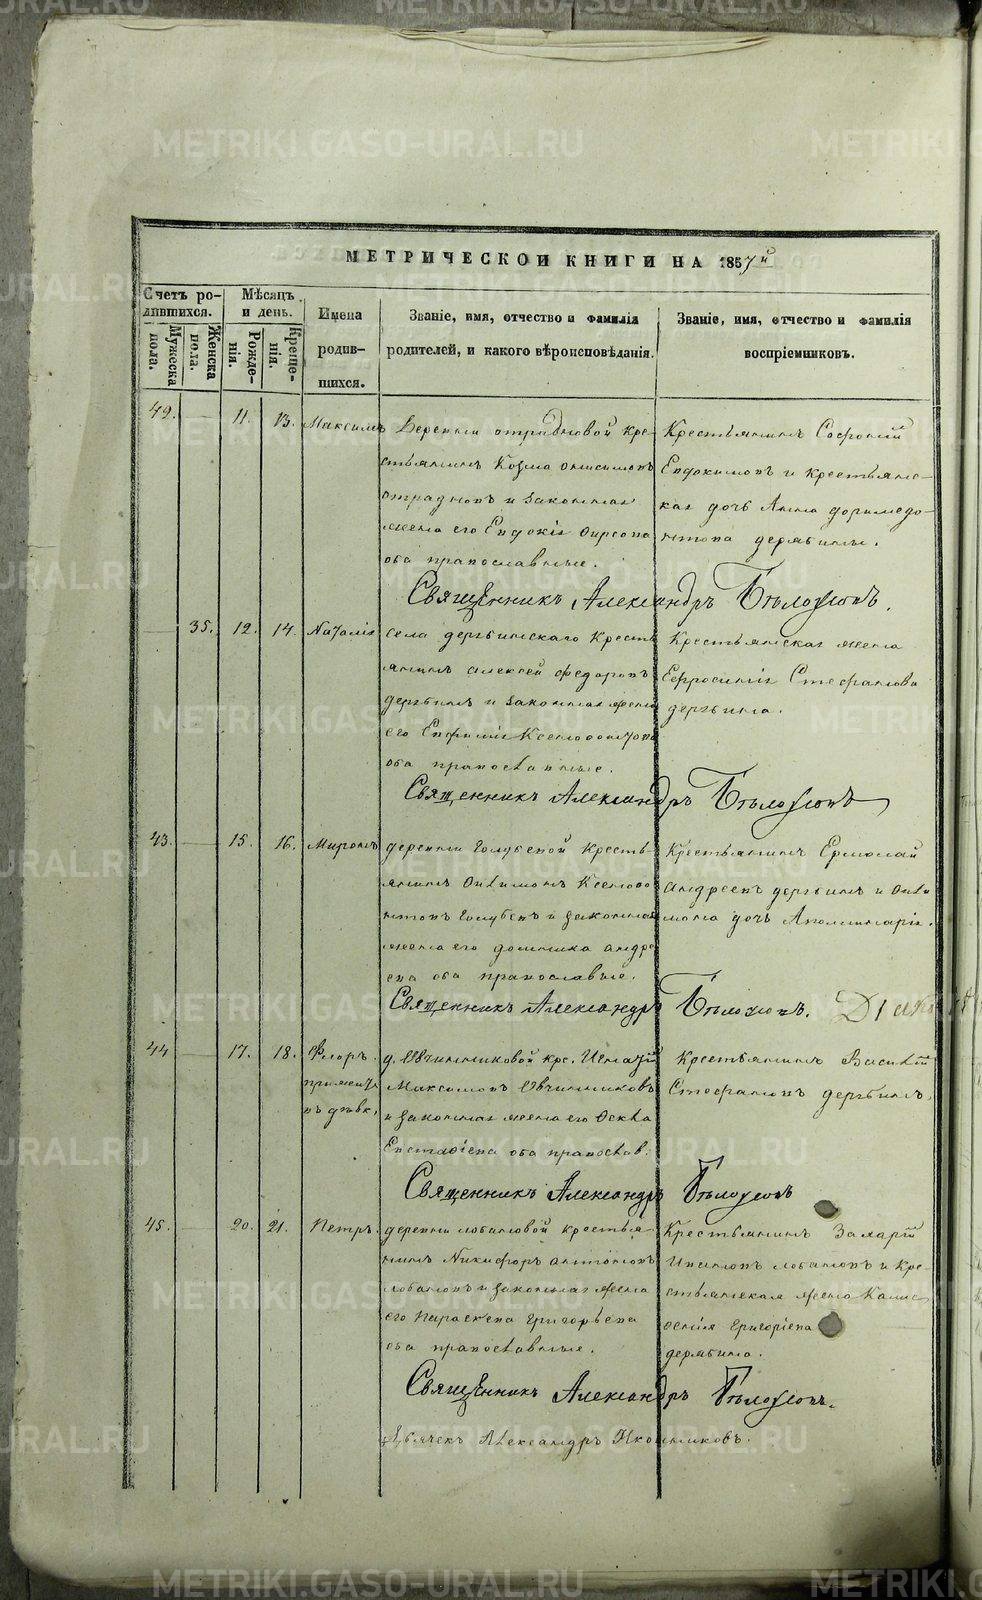 МЕТРИЧЕСКОЙ КНИГИ НА 1857й
Счетъ ро-
дившихся.
Мужеска
пола.
Женска
пола.
Мѣсяцъ
и день.
Рожде-
нія.
Креще-
нія.
Имена
родив-
шихся.
Званіе, имя, отчество и фамилія
родителей, и какого вѣроисповѣданія.
Званіе, имя, отчество и фамилія
воспріемниковъ.
42.
11.
13.
Максимъ
Деревни отрадновой кре-
стьянинъ Козма онисимовъ
отрадновъ и законная
жена его Евдокія Фирсова
оба православные.
Крестьянинъ Софоній
Евдокимовъ и крестьянс-
кая дочь Анна доримедо-
нтова дерябины.
Священникъ Александръ Бѣлоусовъ.
35.
12.
14.
Наталія
села дерябинскаго Кресть
янинъ алексей федоровъ
дерябинъ и законная жена
его Евфимія Ксенофонтова
оба православные.
Крестьянская жена
Ефросинія Стефанова
дерябина.
Священникъ Александръ Бѣлоусовъ
43.
15.
16.
Миронъ
деревни Голубевой кресть-
янинъ Филимонъ Ксенофо
нтовъ Голубевъ и законная
жена его домника андре
ева оба православные.
Крестьянинъ Ермолай
андреевъ дерябинъ и Фили
монова дочь Аполлинарія.
Священникъ Александръ Бѣлоусовъ.
44
17.
18.
Флоръ.
д. Овчинниковой крс. Игнатій
Максимовъ Овчинниковъ
и законная жена его Фекла
Евстафіева оба православ.
Крестьянинъ Василій
Стефановъ дерябинъ.
Священникъ Александръ Бѣлоусовъ
45.
20.
21.
Петръ.
деревни лобановой крестья-
нинъ Никифоръ антоновъ
лобановъ и законная жена
его параскева григорьева
оба православные.
Крестьянинъ Захарій
Ивановъ лобановъ и кре-
стьянская жена Калис
фенія григоріева
дерябина.
Священникъ Александръ Бѣлоусовъ.
Дьячекъ Александръ Иконниковъ.
METRIKI.GASO-URAL.RU